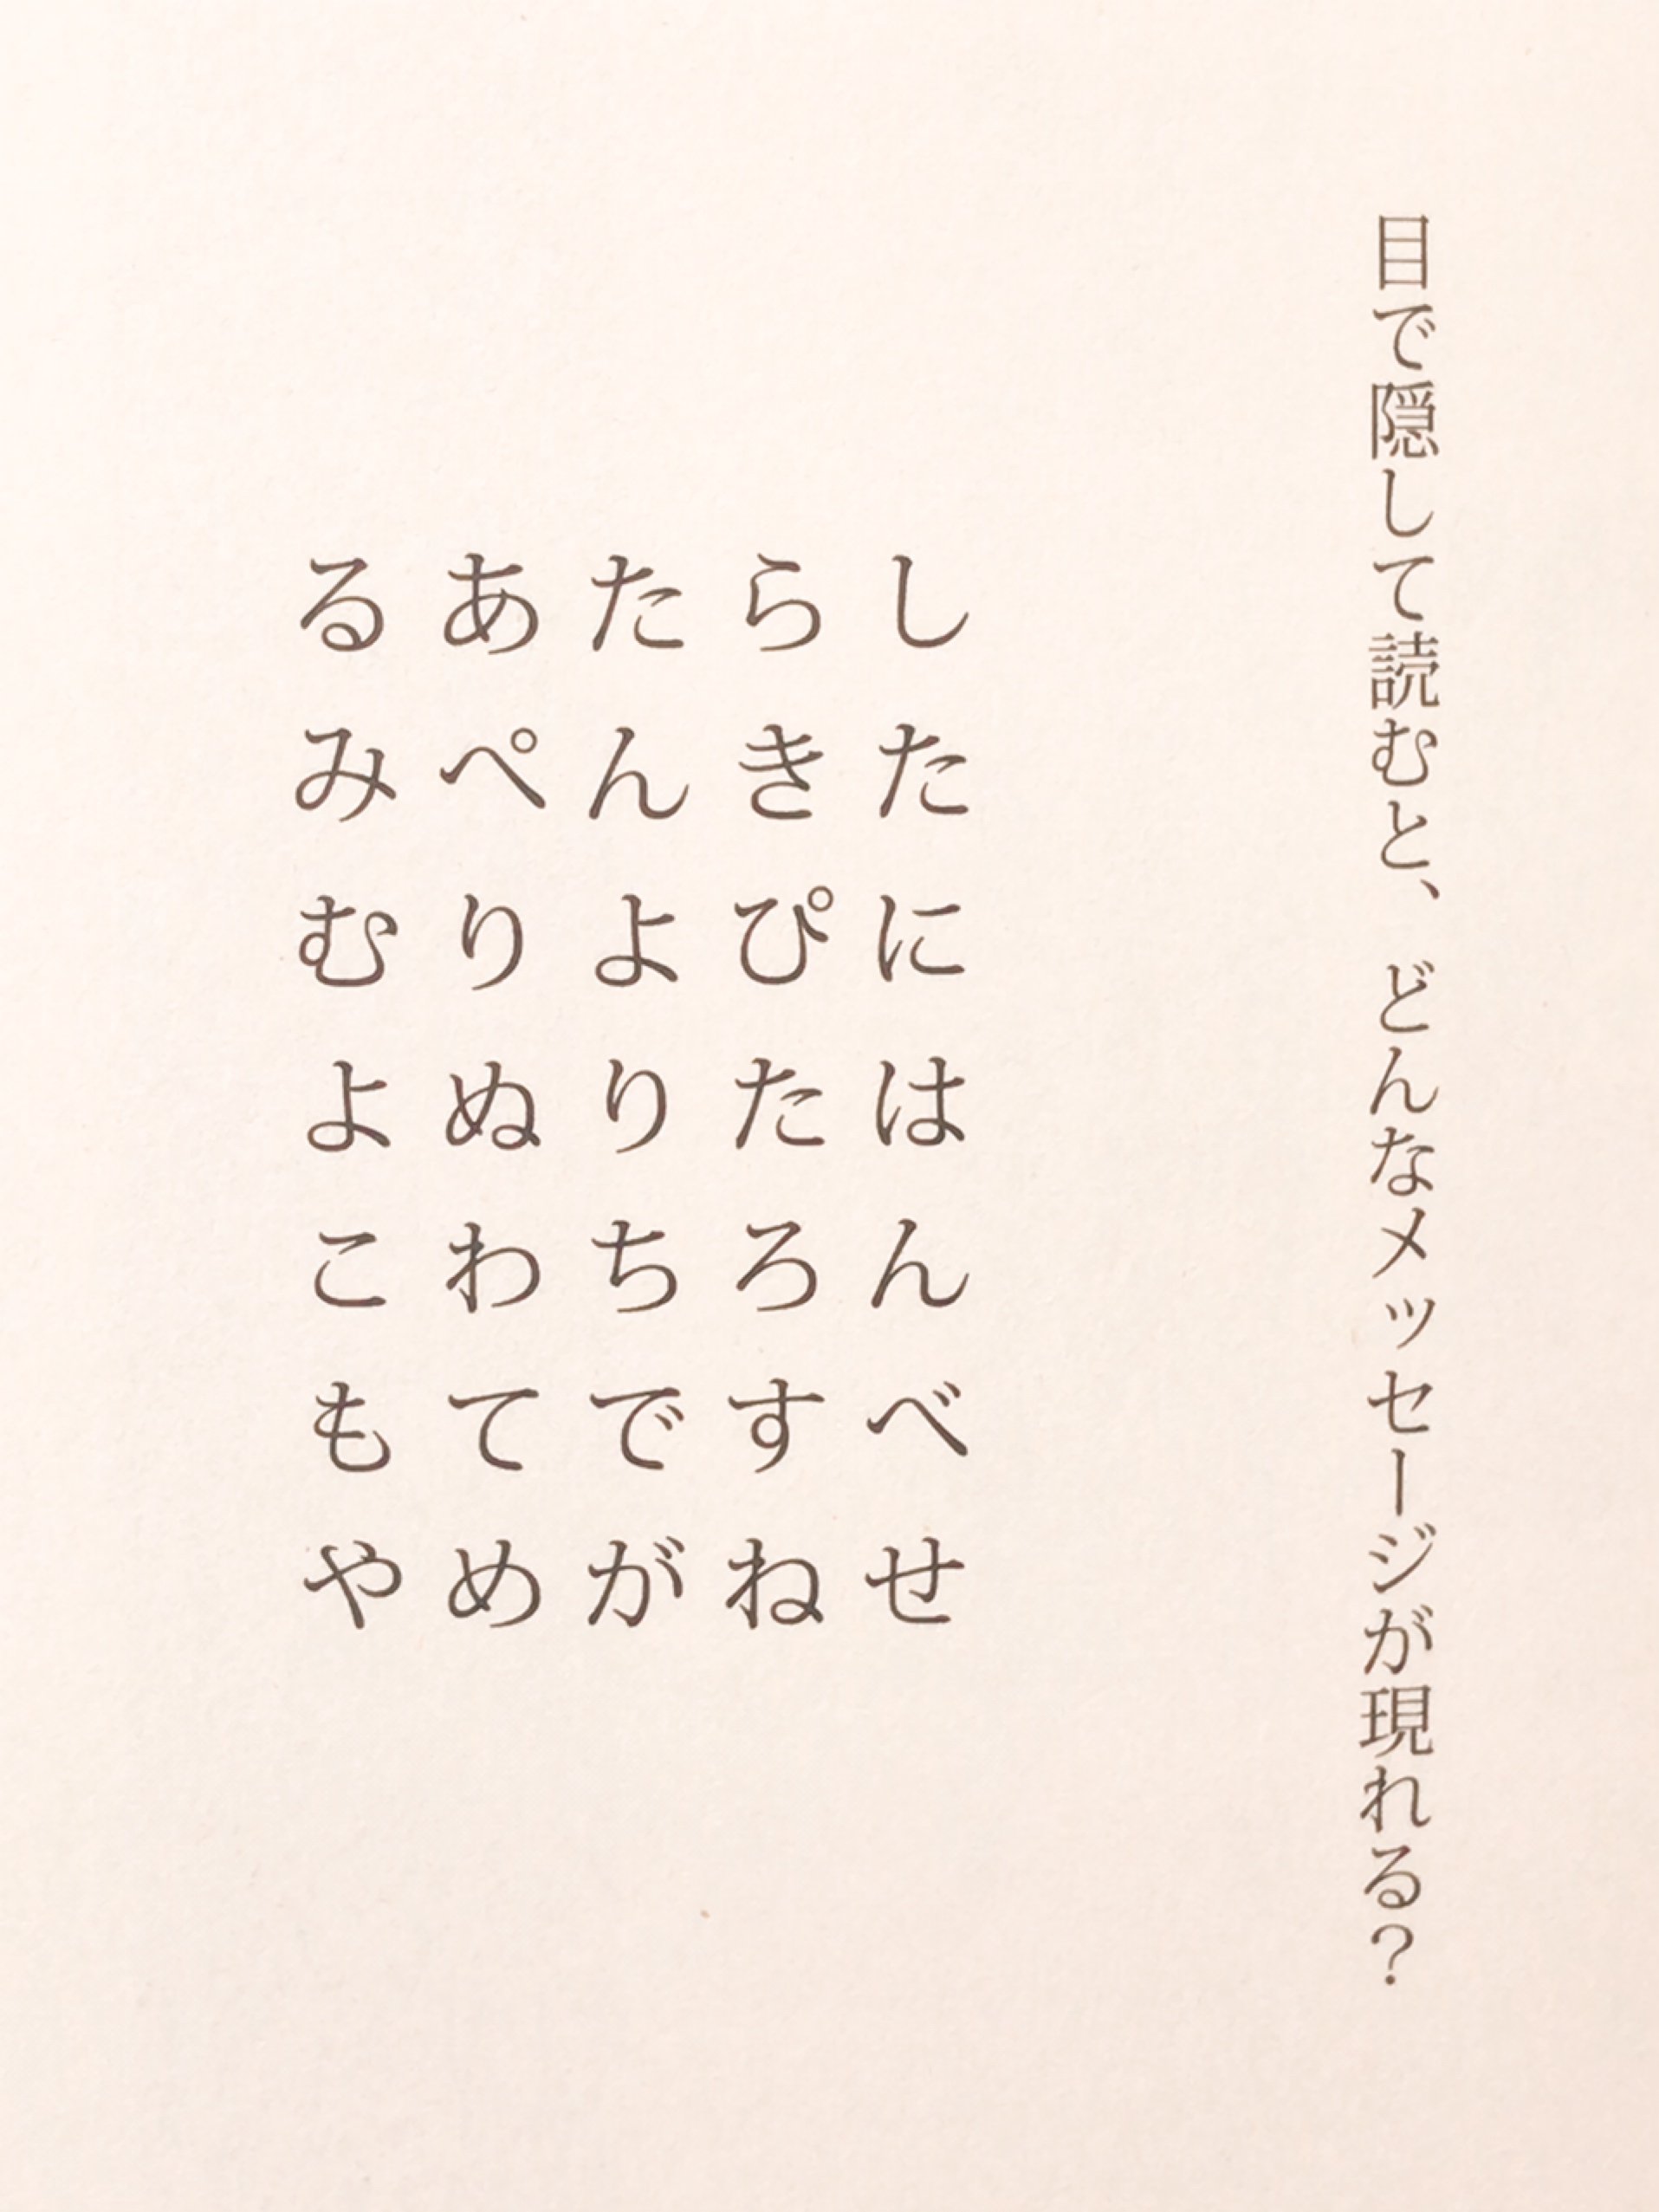 目で隠して読むと、どんなメッセージが現れる？
したにはんべせ
らきぴたろすね
たんよりちでが
あぺりぬわてめ
るみむよこもや